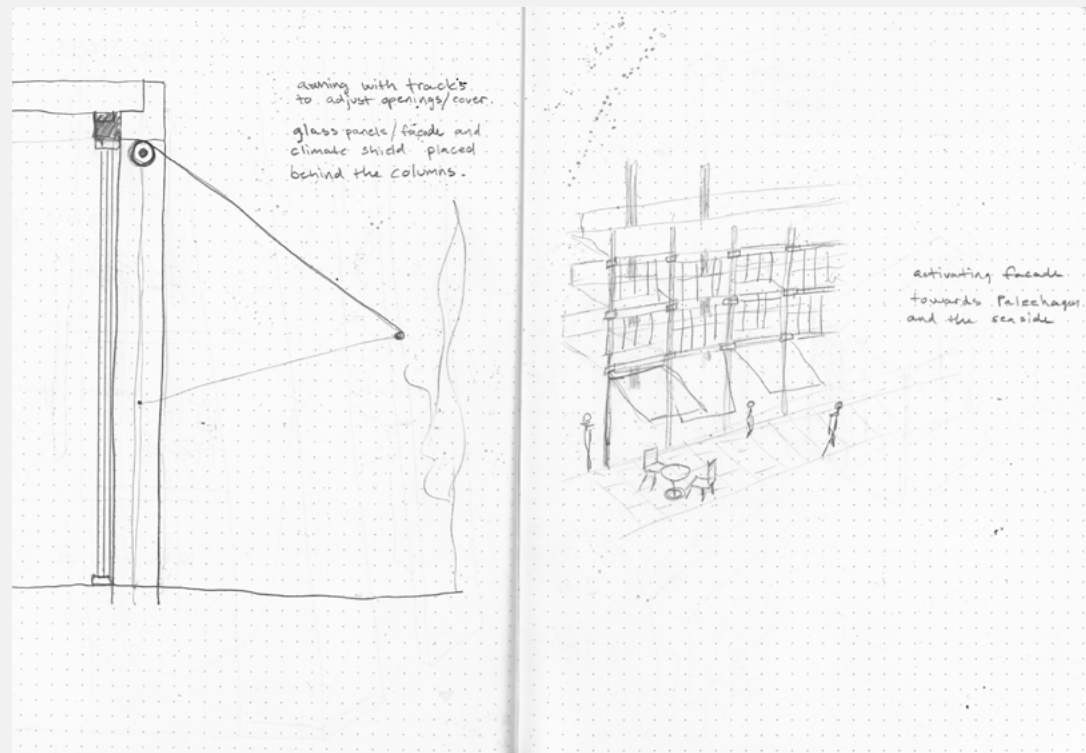 awning with tracks
to adjust openings/cover.
glass panels/facade and
climate shield placed
behind the columns.
activating facade
towards
and the seaside